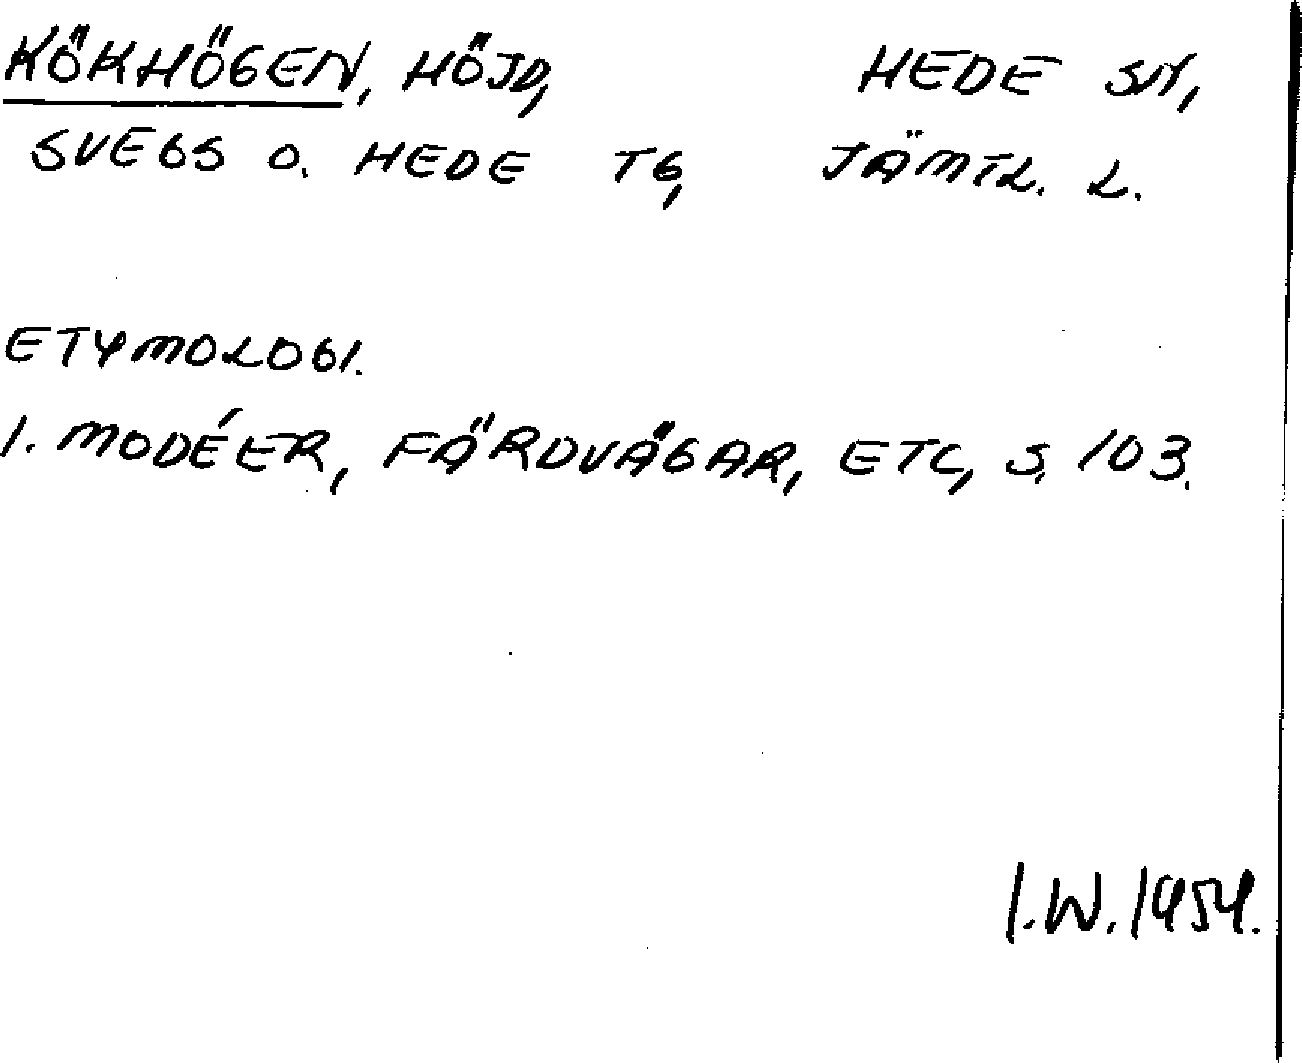 KÖKHÖGEN, HÖJD, HEDE SN,
SVEGS O. HEDE TG, JÄMTL. L.
ETYMOLOGI.
1. MODÉER, FÄRDVÄGAR, ETC, S. 103.
I.W. 1954.